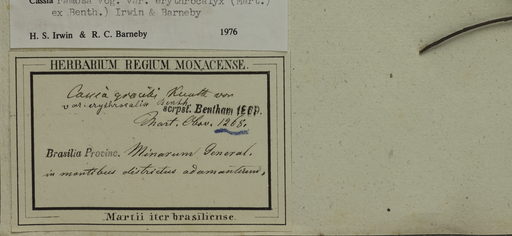 Cassia ramosa Vog. var. erythrocalyx (Mart.)
ex Benth.) Irwin & Barneby
H. S. Irwin & R. C. Barneby 1976
HERBARIUM REGIUM MONACENSE.
Cassia gracilis Kunth var
var. Benth
scrpst. Bentham
Mart. Obsv. 1268.
Brasilia Provinc. Minarum General.
in montibus districtus adamantium,
Martii iter brasiliense.